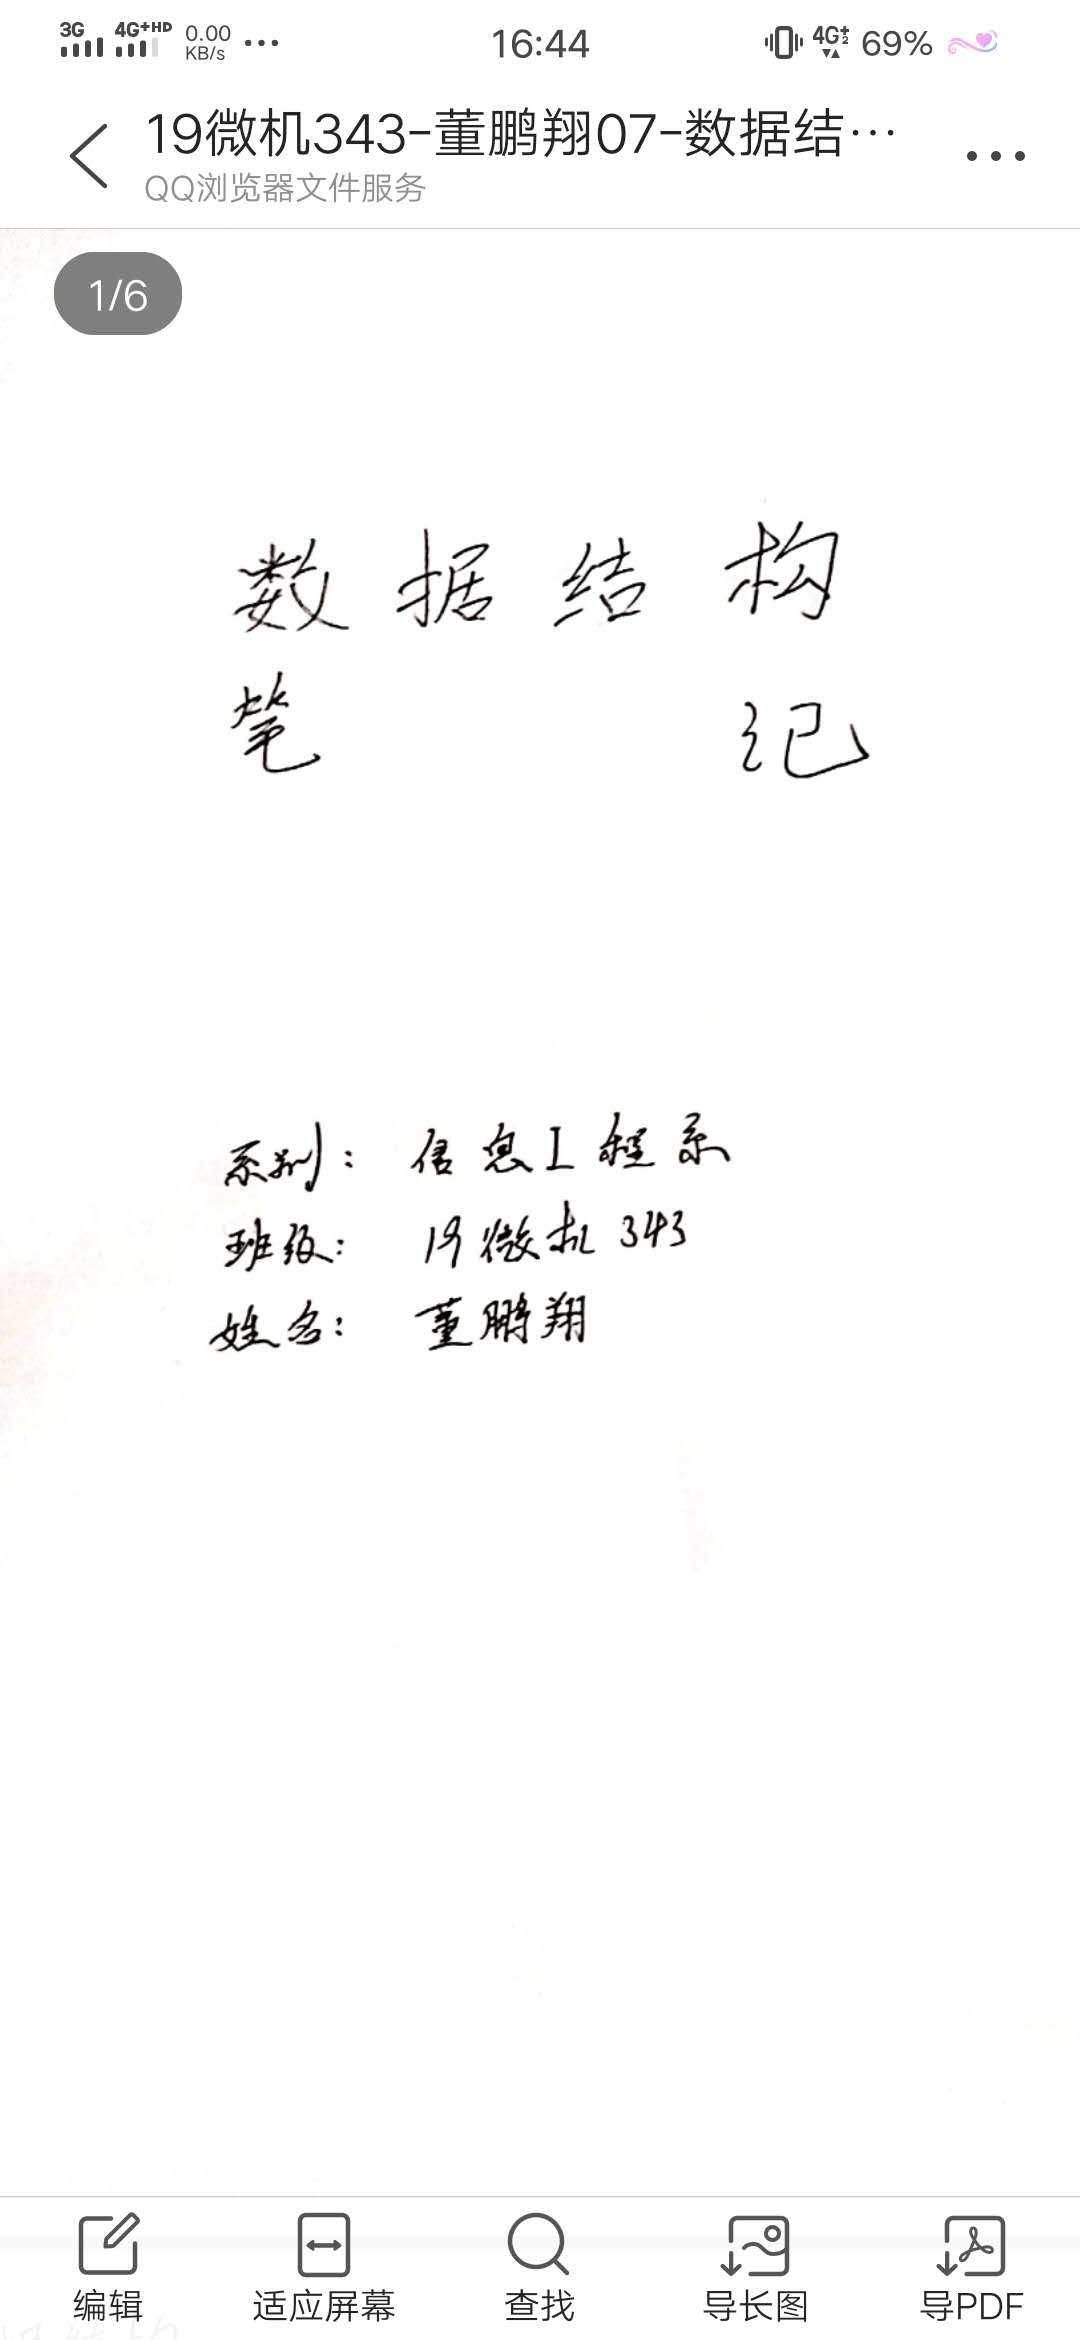 3G 4G+HD 0.00 KB/s ... 16:44 4G+2 69%
19微机343-董鹏翔07-数据结...
QQ浏览器文件服务
1/6
数据结构
笔记
系别: 信息工程系
班级: 19微机343
姓名: 董鹏翔
编辑 适应屏幕 查找 导长图 导PDF